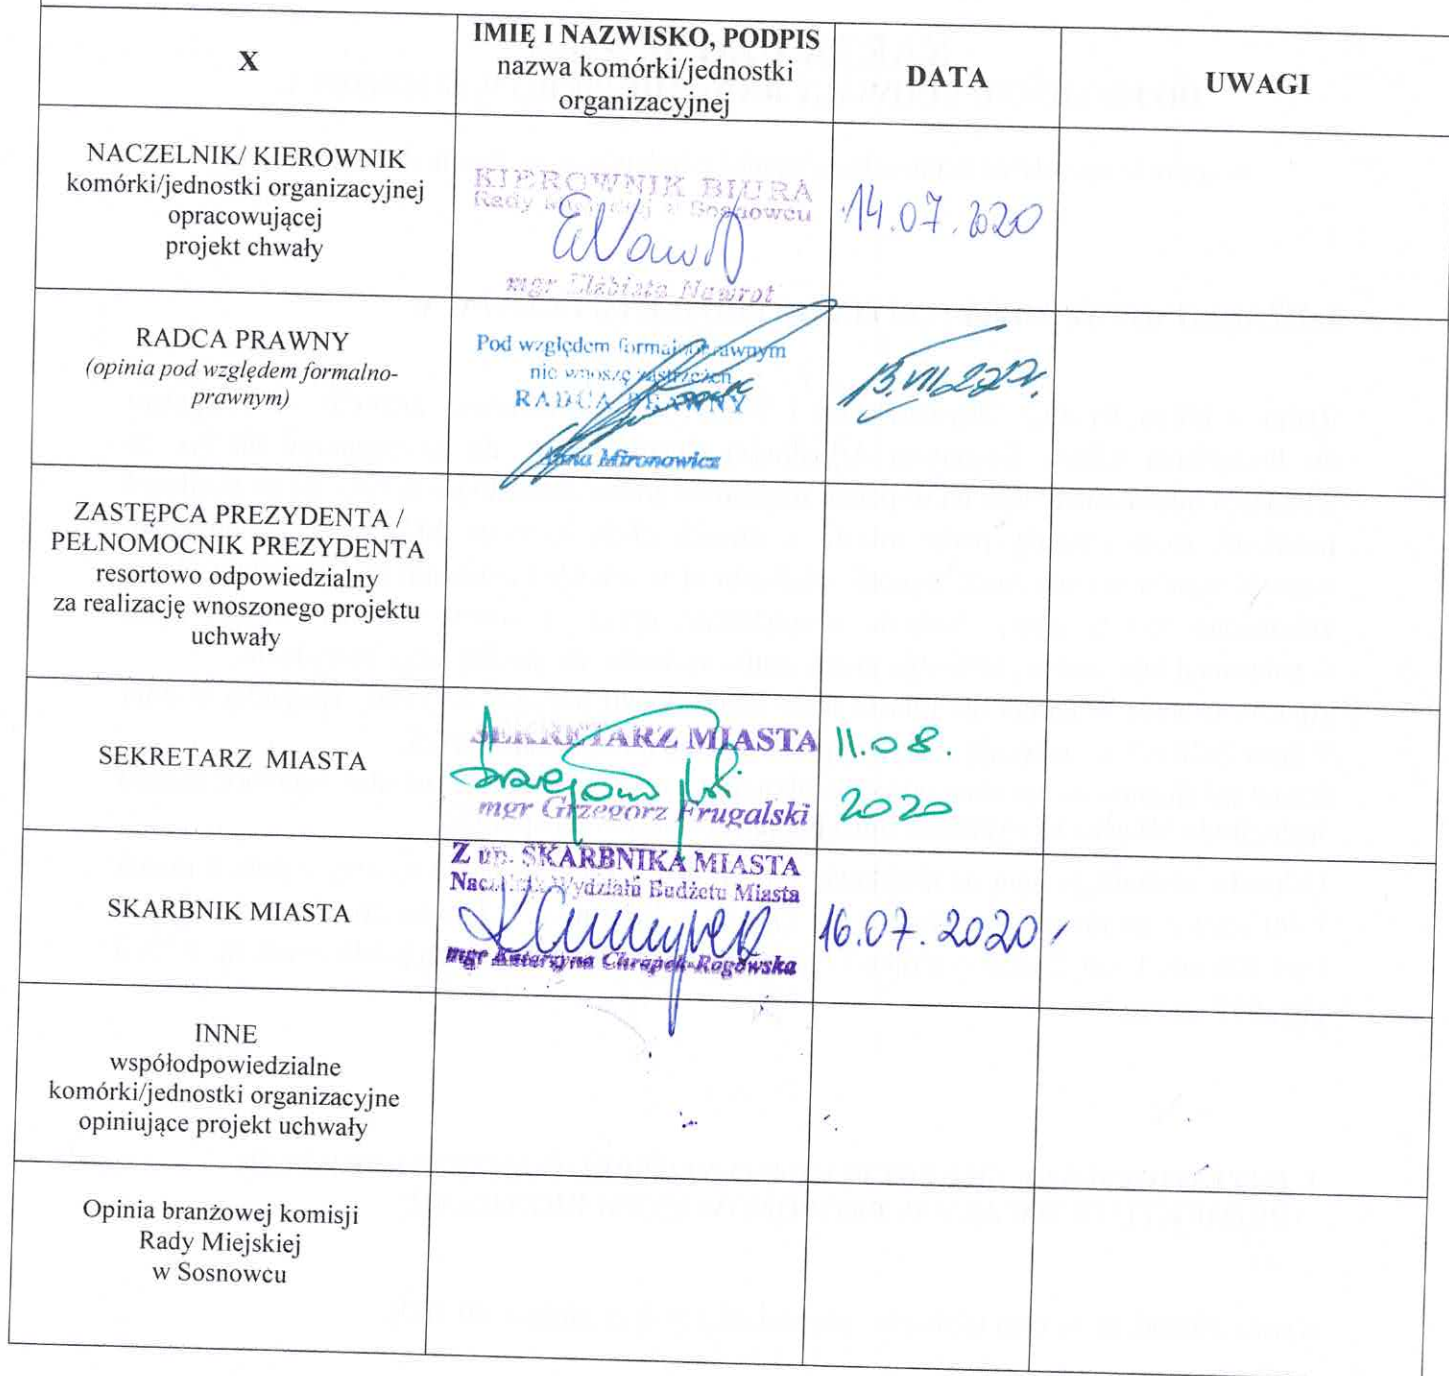 X
IMIĘ I NAZWISKO, PODPIS
nazwa komórki/jednostki
organizacyjnej
DATA
UWAGI
NACZELNIK/ KIEROWNIK
komórki/jednostki organizacyjnej
opracowującej
projekt chwały
KIEROWNIK BIURA
Rady Miejskiej w Sosnowcu
mgr Elżbieta Nawrot
14.07.2020
RADCA PRAWNY
(opinia pod względem formalno-
prawnym)
Pod względem formalnoprawnym
nie wnoszę zastrzeżeń
RADCA PRAWNY
Anna Mironowicz
ZASTĘPCA PREZYDENTA /
PEŁNOMOCNIK PREZYDENTA
resortowo odpowiedzialny
za realizację wnoszonego projektu
uchwały
SEKRETARZ MIASTA
SEKRETARZ MIASTA
mgr Grzegorz Frugalski
11.08.
2020
SKARBNIK MIASTA
Z up. SKARBNIKA MIASTA
Naczelnik Wydziału Budżetu Miasta
mgr Katarzyna Chrapek-Rogowska
16.07.2020
INNE
współodpowiedzialne
komórki/jednostki organizacyjne
opiniujące projekt uchwały
Opinia branżowej komisji
Rady Miejskiej
w Sosnowcu